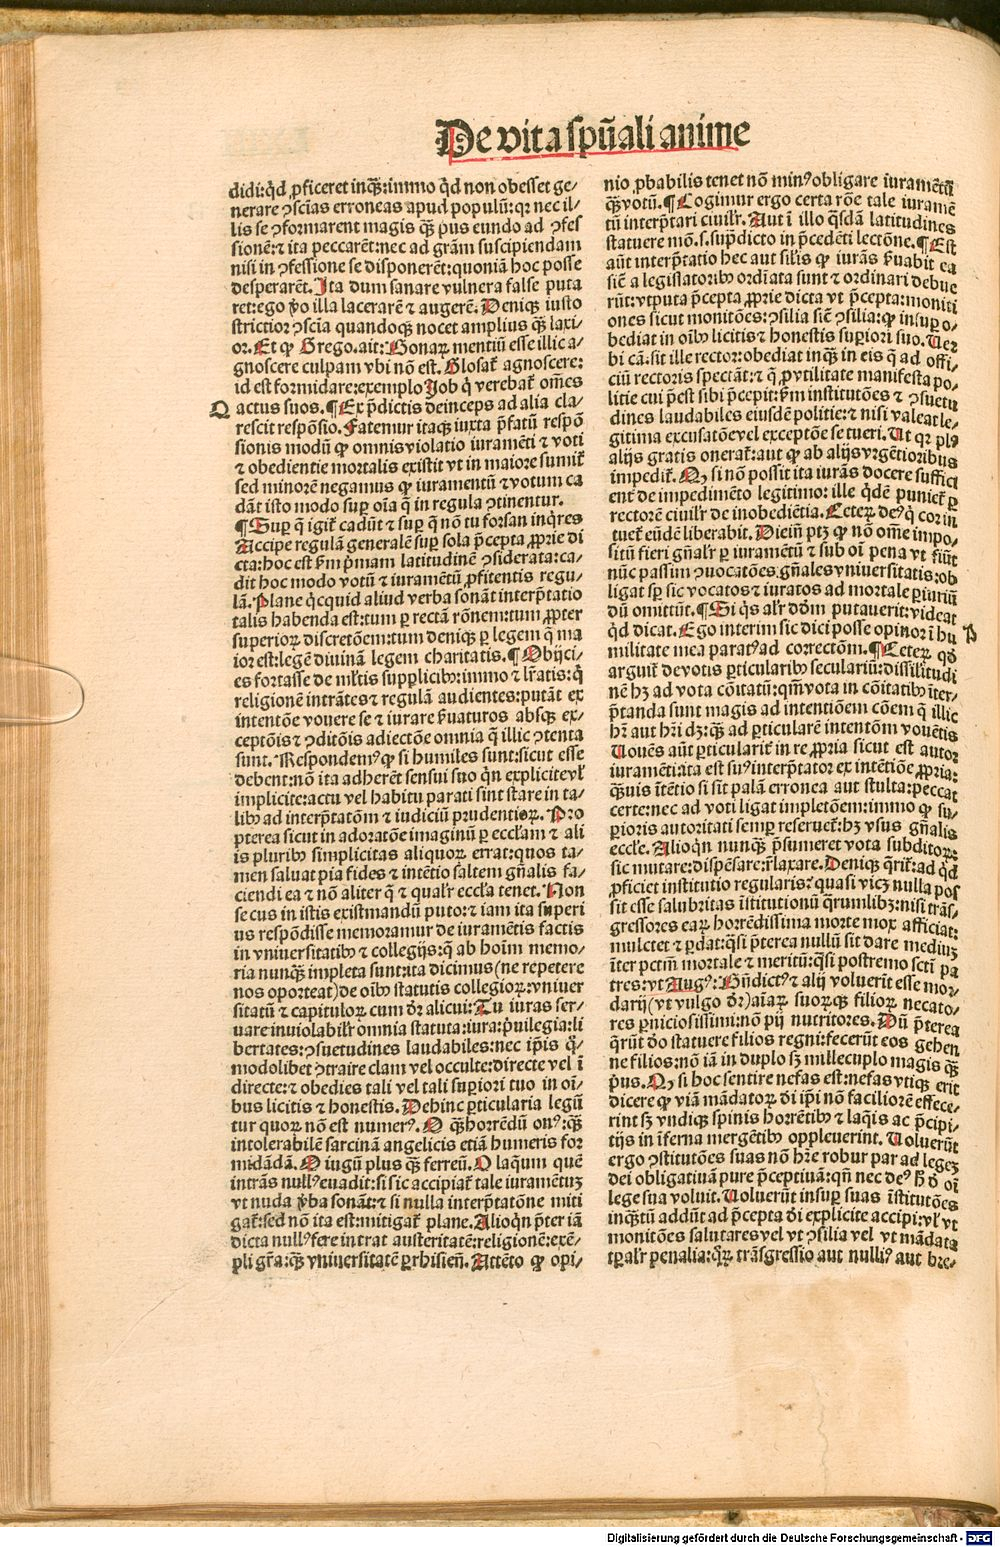 De vita spūali anime
didi:q̇d ꝓficeret inq̄ȝ:immo q̇d non obesset ge/
nerare ↄsciās erroneas apud populū:qꝛ nec il/
lis se ↄformarent magis q̄ȝ pꝰus eundo ad ↄfes
sionē:⁊ ita peccarēt:nec ad grām suscipiendam
nisi in ↄfessione se disponerēt:quoniā hoc posse
desperarēt. Ita dum sanare vulnera false puta
ret:ego ꝟo illa lacerarē ⁊ augerē. Deniqȝ iusto
strictior ↄscia quandoqȝ nocet amplius q̄ȝ laxi/
or. Et ꝙ Grego. ait: Bonaꝝ mentiū esse illic a/
gnoscere culpam vbi nō est. Glosat᷑ agnoscere:
id est formidare:exemplo Job q̇ verebat᷑ om̄es
Q actus suos. ¶ Ex p̄dictis deinceps ad alia cla/
rescit respōsio. Fatemur itaqȝ iuxta p̄fatū respō
sionis modū ꝙ omnis violatio iuramēti ⁊ voti
⁊ obedientie mortalis existit vt in maiore sumit᷑
sed minorē negamus ꝙ iuramentū ⁊ votum ca
dāt isto modo suꝑ oīa q̄ in regula ↄtinentur.
¶ Suꝑ q̄ igit᷑ cadūt ⁊ suꝑ q̄ nō tu forsan inq̇res
Accipe regulā generalē suꝑ sola p̄cepta ꝓprie di
cta:hoc est ẜm p̄mam latitudinē ↄsiderata:ca/
dit hoc modo votū ⁊ iuramētū ꝓfitentis regu/
lā. Plane q̇cquid aliud verba sonāt interp̄tatio
talis habenda est:tum ꝑ rectā rōnem:tum ꝓpter
superioꝝ discretōem:tum deniqȝ ꝑ legem q̄ ma
ior est:legē diuinā legem charitatis. ¶ Obijci/
es fortasse de ml̄tis supplicibꝰ:immo ⁊ lr̄atis:q̇
religionē intrātes ⁊ regulā audientes:putāt ex
intentōe vouere se ⁊ iurare ẜuaturos absqȝ ex/
ceptōis ⁊ ↄditōis adiectōe omnia q̄ illic ↄtenta
sunt. Respondemꝰ ꝙ si humiles sunt:sicut esse
debent:nō ita adherēt sensui suo q̇n explicite vl᷑
implicite:actu vel habitu parati sint stare in ta/
libꝰ ad interp̄tatōm ⁊ iudiciū prudentioꝝ. Pro
pterea sicut in adoratōe imaginū ꝑ eccl̄am ⁊ ali
is pluribꝰ simplicitas aliquoꝝ errat:quos ta/
men saluat pia fides ⁊ intētio saltem gn̄alis fa/
ciendi ea ⁊ nō aliter q̄ ⁊ qual᷑r eccl̄a tenet. Non
secus in istis existmandū puto:⁊ iam ita superi
us respōdisse memoramur de iuramētis factis
in vniuersitatibꝰ ⁊ collegijs:q̄ ab hoīm memo/
ria nunq̄ȝ impleta sunt:ita dicimus (ne repetere
nos oporteat) de oībꝰ statutis collegioꝝ:vniuer
sitatū ⁊ capituloꝝ cum dr̄ alicui: Tu iuras ser/
uare inuiolabil᷑r omnia statuta:iura:p̄uilegia:li
bertates:ↄsuetudines laudabiles:nec ip̄is q̇/
modolibet ↄtraire clam vel occulte:directe vel ī
directe:⁊ obedies tali vel tali suꝑiori tuo in oī/
bus licitis ⁊ honestis. Dehinc ꝑticularia legū
tur quoꝝ nō est numerꝰ. O q̄ȝ horrēdū onꝰ:q̄ȝ
intolerabilē sarcinā angelicis etiā humeris for
midādā. O iugū plus q̄ȝ ferreū. O laq̄um quē
intrās nullꝰ euadit:si sic accipiat᷑ tale iuramētuȝ
vt nuda ꝟba sonāt:⁊ si nulla interp̄tatōne miti
gat᷑:sed nō ita est:mitigat᷑ plane. Alioq̇n p̄ter iā
dicta nullꝰ fere intrat austeritatē:religionē:exē/
pli gr̄a:q̄ȝ vniuersitatē ꝑrhisieñ. Attēto ꝙ opi/
nio ꝓbabilis tenet nō minꝰ obligare iuramētū
q̄ȝ votū. ¶ Cogimur ergo certa rōe tale iuramē
tū interp̄tari ciuil᷑r. Aut ī illo q̄sdā latitudines
statuere mō. s. sup̄dicto in p̄cedēti lectōne. ¶ Est
aūt interp̄tatio hec aut sil̄is ꝙ iurās ẜuabit ea
sic̄ a legislatoribꝰ ordīata sunt ⁊ ordinari debue
rūt:vtputa p̄cepta ꝓprie dicta vt p̄cepta:moniti
ones sicut monitōes:ↄsilia sic̄ ↄsilia:ꝙ insuꝑ o/
bediat in oībꝰ licitis ⁊ honestis suꝑiori suo. Uer
bi cā. sit ille rector:obediat inq̄ȝ in eis q̄ ad offi/
ciū rectoris spectāt:⁊ q̄ ꝓ vtilitate manifesta po/
litie cui p̄est sibi p̄cepit:ẜm institutōes ⁊ ↄsuetu
dines laudabiles eiusdē politie:⁊ nisi valeat le/
gitima excusatōe vel exceptōe se tueri. Ut qꝛ plꝰ
alijs gratis onerat᷑:aut ꝙ ab alijs vrgētioribus
impedit᷑. Qȝ si nō possit ita iurās docere suffici
ent᷑ de impedimēto legitimo:ille q̇dē puniet᷑ ꝑ
rectorē ciuil᷑r de inobediētia. Ceteꝝ deꝰ q̇ cor in
tuet᷑ eūdē liberabit. Dieiñ ptȝ ꝙ nō om̄e impo/
sitū fieri gn̄al᷑r ꝑ iuramētū ⁊ sub oī pena vt fiūt
nūc passim ↄuocatōes gn̄ales vniuersitatis:ob
ligat sꝑ sic vocatos ⁊ iuratos ad mortale ꝑiuriū
dū omittūt. ¶ Si q̇s al᷑r dōm putauerit:videat
q̇d dicat. Ego interim sic dici posse opinor ī hu
P
militate mea paratꝰ ad correctōm. ¶ Ceteꝝ qd̄
arguit᷑ de votis ꝑticularibꝰ seculariū:dissil̄itudi
nē hȝ ad vota cōitatū:qm̄ vota in cōitatibꝰ īter/
p̄tanda sunt magis ad intentiōem cōem q̄ illic
hr̄ aut hr̄i dȝ:q̄ȝ ad ꝑticularē intentōm vouētis
Uouēs aūt ꝑticularit᷑ in re ꝓpria sicut est autor
iuramēti:ita est suꝰ interp̄tator ex intētiōe ꝓpria:
q̄uis ītētio si sit palā erronea aut stulta:peccat
certe:nec ad voti ligat impletōem:immo ꝙ su/
ꝑioris autoritati semꝑ reseruet᷑:hȝ vsus gn̄alis
eccl̄e. Alioq̇n nunq̄ȝ p̄sumeret vota subditoꝝ:
sic mutare:dispēsare:r̄laxare. Deniqȝ q̄rit᷑:ad q̇d
ꝓficiet institutio regularis? quasi vicȝ nulla pos
sit esse salubritas īstitutionū q̄rumlibȝ:nisi trās/
gressores eaꝝ horrēdissima morte mox afficiat:
mulctet ⁊ ꝑdat:q̄si p̄terea nullū sit dare mediuȝ
īter pctm̄ mortale ⁊ meritū:q̄si postremo sctī pa
tres:vt Augꝰ: Bn̄dictꝰ ⁊ alij voluerīt esse mor/
darij (vt vulgo dr̄) aīaꝝ suoꝝqȝ filioꝝ necato/
res ꝑniciosissimi:nō pij nutritores. Dū p̄terea
q̄rūt dōo statuere filios regni:fecerūt eos gehen
ne filios:nō iā in duplo sȝ millecuplo magis q̄ȝ
pꝰus. Qȝ si hoc sentire nefas est:nefas vtiqȝ erit
dicere ꝙ viā mādatoꝝ dī ip̄i nō faciliorē effece/
rint sȝ vndiqȝ spinis horrētibꝰ ⁊ laq̄is ac p̄cipi/
tijs in īferna mergētibꝰ oppleuerint. Uoluerūt
ergo ↄstitutōes suas nō hr̄e robur par ad legeȝ
dei obligatiuā pure p̄ceptiuā:qn̄ nec deꝰ h̄ d̄ oī
lege sua voluit. Uoluerūt insuꝑ suas īstitutōes
inq̄tū addūt ad p̄cepta dī explicite accipi:vl᷑ vt
monitōes salutares vel vt ↄsilia vel vt mādata
tꝑal᷑r penalia:q̄ꝝ trāsgressio aut nulliꝰ aut bre/
Digitalisierung gefördert durch die Deutsche Forschungsgemeinschaft - DFG